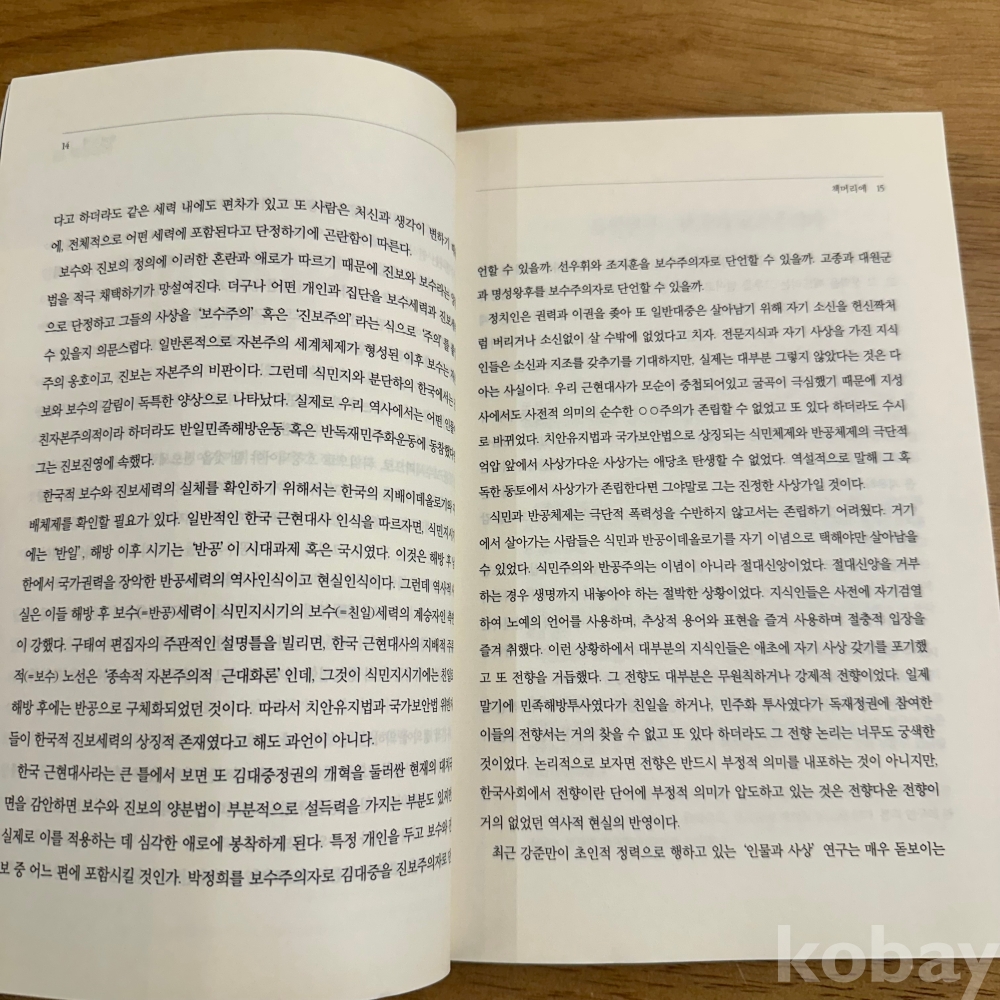 14
다고 하더라도 같은 세력 내에도 편차가 있고 또 사람은 처신과 생각이 변하기
에, 전체적으로 어떤 세력에 포함된다고 단정하기에 곤란함이 따른다.
보수와 진보의 정의에 이러한 혼란과 애로가 따르기 때문에 진보와 보수라는
법을 적극 채택하기가 망설여진다. 더구나 어떤 개인과 집단을 보수세력과
으로 단정하고 그들의 사상을 '보수주의' 혹은 '진보주의' 라는 식으로 '주의'를
수 있을지 의문스럽다. 일반론적으로 자본주의 세계체제가 형성된 이후 보수는
주의 옹호이고, 진보는 자본주의 비판이다. 그런데 식민지와 분단하의 한국에서는
보와 보수의 갈림이 독특한 양상으로 나타났다. 실제로 우리 역사에서는 어떤
친자본주의적이라 하더라도 반일민족해방운동 혹은 반독재민주화운동에
그는 진보진영에 속했다.
한국적 보수와 진보세력의 실체를 확인하기 위해서는 한국의 지배이데올로기와
배체제를 확인할 필요가 있다. 일반적인 한국 근현대사 인식을 따르자면,
에는 '반일', 해방 이후 시기는 '반공' 이 시대과제 혹은 국시였다. 이것은 해방 후
한에서 국가권력을 장악한 반공세력의 역사인식이고 현실인식이다. 그런데
실은 이들 해방 후 보수(=반공)세력이 식민지시기의 보수(=친일)세력의 계승자인
이 강했다. 구태여 편집자의 주관적인 설명틀을 빌리면, 한국 근현대사의 지배적
적(=보수) 노선은 '종속적 자본주의적 근대화론' 인데, 그것이 식민지시기에는
해방 후에는 반공으로 구체화되었던 것이다. 따라서 치안유지법과 국가보안법
들이 한국적 진보세력의 상징적 존재였다고 해도 과언이 아니다.
한국 근현대사라는 큰 틀에서 보면 또 김대중정권의 개혁을 둘러싼 현재의
면을 감안하면 보수와 진보의 양분법이 부분적으로 설득력을 가지는 부분도
실제로 이를 적용하는 데 심각한 애로에 봉착하게 된다. 특정 개인을 두고 보수와
보 중 어느 편에 포함시킬 것인가. 박정희를 보수주의자로 김대중을 진보주의자로
책머리에 15
언할 수 있을까. 선우휘와 조지훈을 보수주의자로 단언할 수 있을까. 고종과 대원군
과 명성왕후를 보수주의자로 단언할 수 있을까.
정치인은 권력과 이권을 좇아 또 일반대중은 살아남기 위해 자기 소신을 헌신짝처
럼 버리거나 소신없이 살 수밖에 없었다고 치자. 전문지식과 자기 사상을 가진 지식
인들은 소신과 지조를 갖추기를 기대하지만, 실제는 대부분 그렇지 않았다는 것은 다
아는 사실이다. 우리 근현대사가 모순이 중첩되어있고 굴곡이 극심했기 때문에 지성
사에서도 사전적 의미의 순수한 ○○주의가 존립할 수 없었고 또 있다 하더라도 수시
로 바뀌었다. 치안유지법과 국가보안법으로 상징되는 식민체제와 반공체제의 극단적
억압 앞에서 사상가다운 사상가는 애당초 탄생할 수 없었다. 역설적으로 말해 그 혹
독한 동토에서 사상가가 존립한다면 그야말로 그는 진정한 사상가일 것이다.
식민과 반공체제는 극단적 폭력성을 수반하지 않고서는 존립하기 어려웠다. 거기
에서 살아가는 사람들은 식민과 반공이데올로기를 자기 이념으로 택해야만 살아남을
수 있었다. 식민주의와 반공주의는 이념이 아니라 절대신앙이었다. 절대신앙을 거부
하는 경우 생명까지 내놓아야 하는 절박한 상황이었다. 지식인들은 사전에 자기검열
하여 노예의 언어를 사용하며, 추상적 용어와 표현을 즐겨 사용하며 절충적 입장을
즐겨 취했다. 이런 상황하에서 대부분의 지식인들은 애초에 자기 사상 갖기를 포기했
고 또 전향을 거듭했다. 그 전향도 대부분은 무원칙하거나 강제적 전향이었다. 일제
말기에 민족해방투사였다가 친일을 하거나, 민주화 투사였다가 독재정권에 참여한
이들의 전향서는 거의 찾을 수 없고 또 있다 하더라도 그 전향 논리는 너무도 궁색한
것이었다. 논리적으로 보자면 전향은 반드시 부정적 의미를 내포하는 것이 아니지만,
한국사회에서 전향이란 단어에 부정적 의미가 압도하고 있는 것은 전향다운 전향이
거의 없었던 역사적 현실의 반영이다.
최근 강준만이 초인적 정력으로 행하고 있는 '인물과 사상' 연구는 매우 돋보이는
kobay